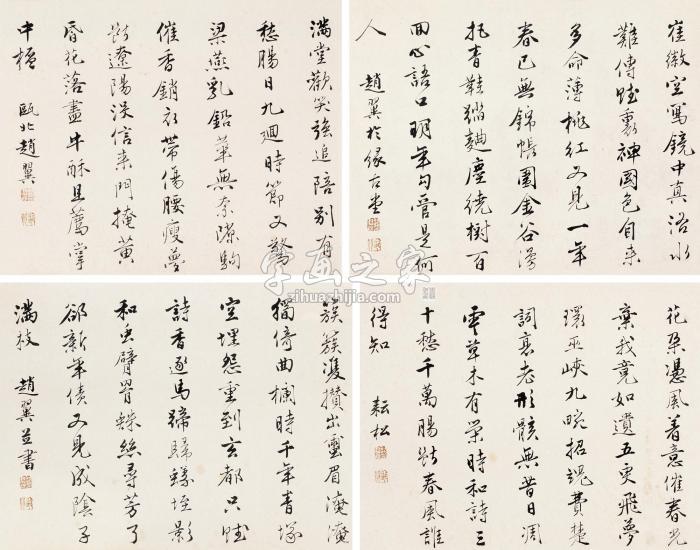 崔徽空寫鏡中真洛水
難傳賦裏神國色自來
多命薄桃紅又見一年
春已無錦帳圍金谷漫
把青鞋踏麯塵繞樹百
回心語口明年勾管是何
人 趙翼於緣古堂
滿堂歡笑強追陪別有
愁腸日九迴時節又驚
梁燕乳鉛華無奈隙駒
催香銷衣帶傷腰瘦夢
斷遼陽沒信來門掩黃
昏花落盡牛酥且薦掌
中桮 甌北趙翼
花朵憑風着意催春光
棄我竟如遺五更飛夢
環巫峽九畹招魂費楚
詞衰老形骸無昔日凋
零草木有榮時和詩三
十愁千萬腸斷春風誰
得知 耘松
簇簇雙攢出繭眉淹淹
獨倚曲欄時千年青塚
空埋怨重到玄都只賦
詩香逐馬蹄歸蟻垤影
和虫臂罥蛛絲尋芳了
卻新年債又見成陰子
滿枝 趙翼並書
字画之家
zihuazhijia.com